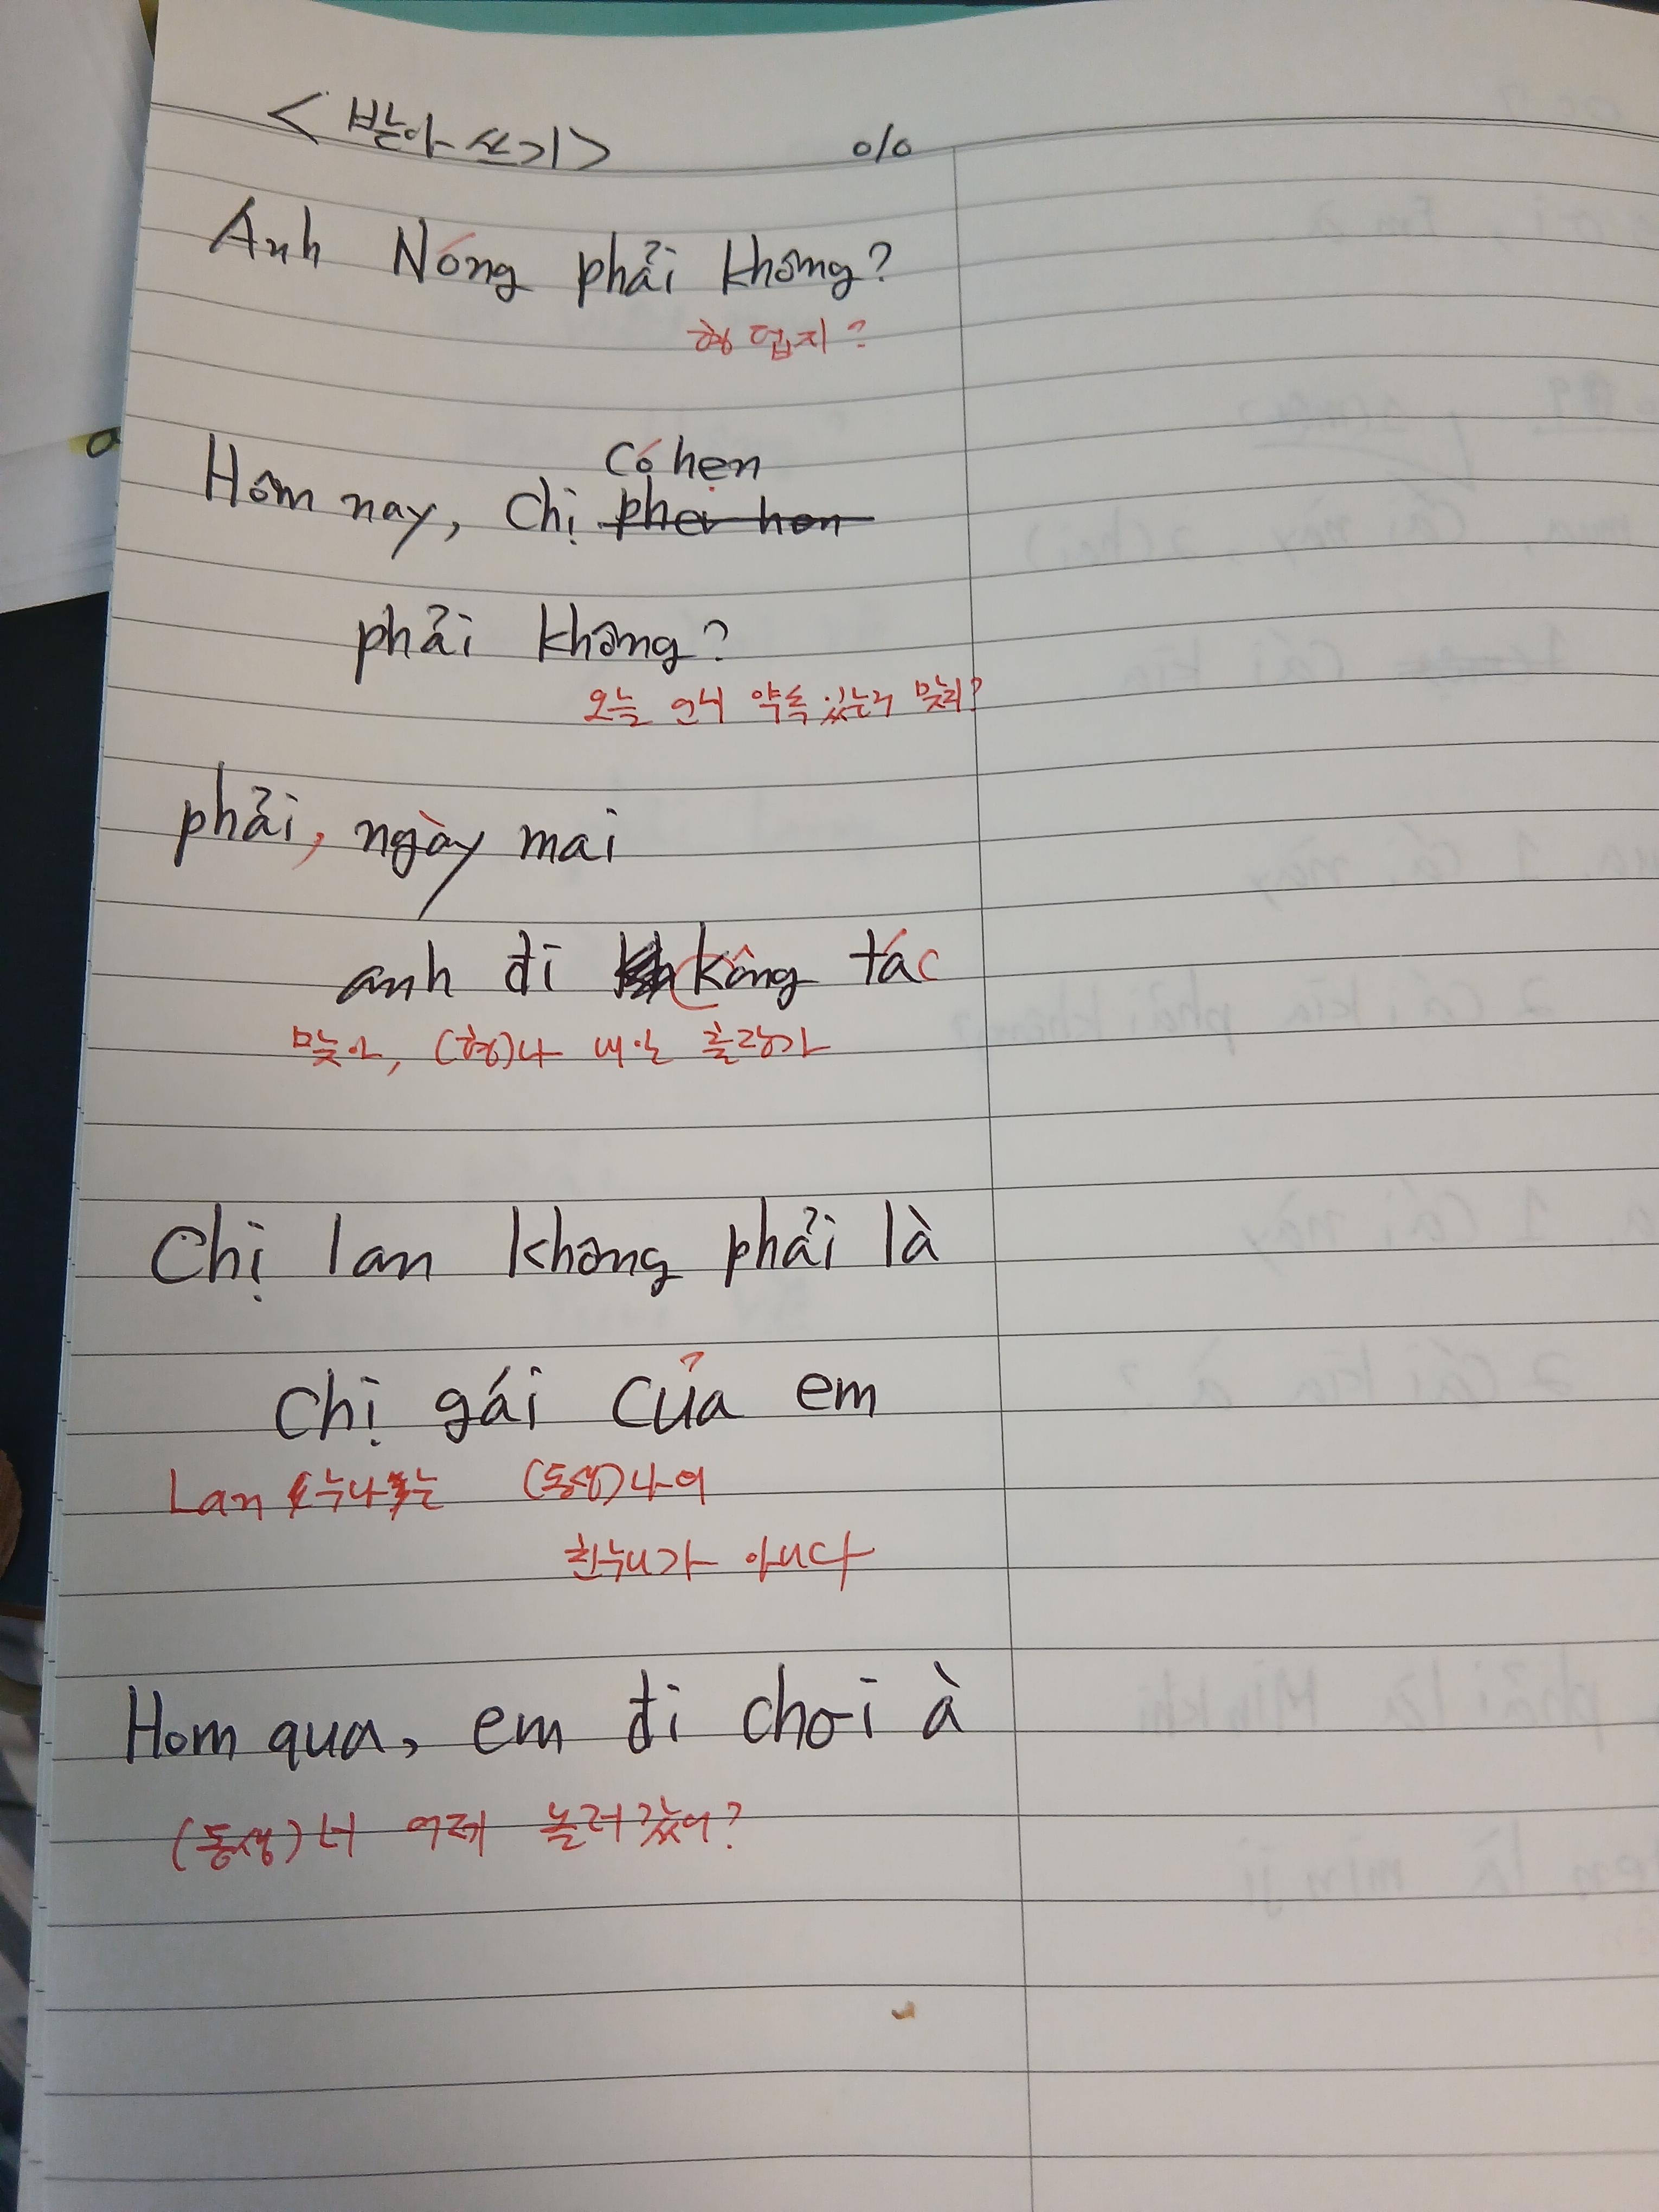 <받아쓰기> 0/0
Anh Nóng phải không?
형 덥지?
Có hẹn
Hôm nay, chị
phải không?
오늘 언니 약속 있는거 맞지?
phải, ngày mai
anh đi kông tác
맞아, (형)나 내일 출장가
Chị lan không phải là
chị gái của em
Lan 누나는 (동생)나의
친누나가 아니다
Hom qua, em đi chơi à
(동생)너 어제 놀러갔어?